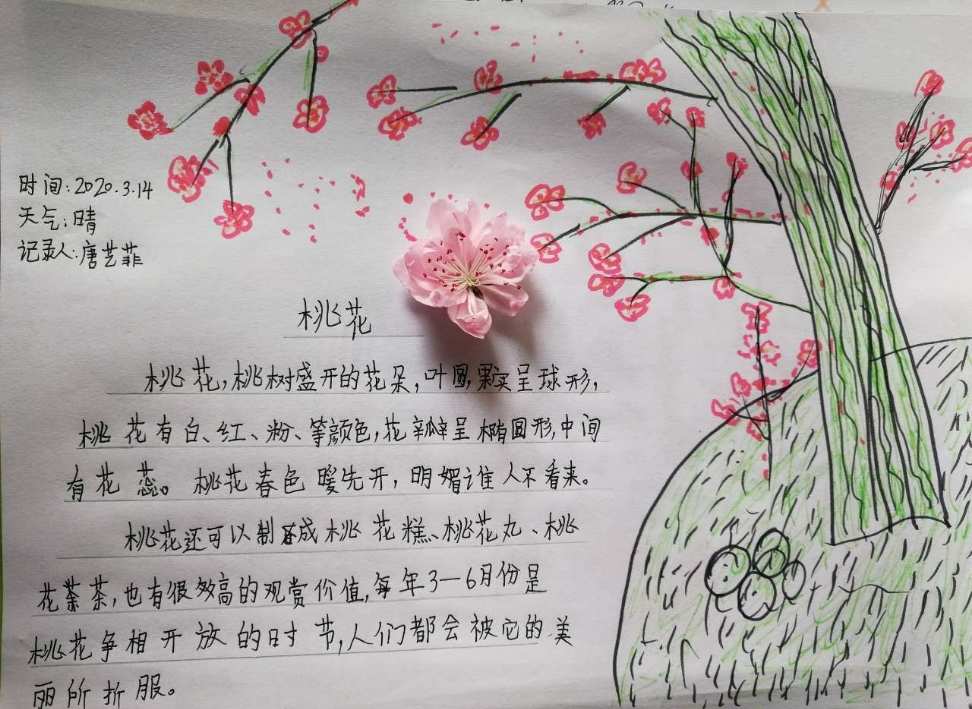 时间:2020.3.14
天气:晴
记录人:唐艺菲
桃花
桃花,桃树盛开的花朵,叶圆,果实呈球形,
桃花有白、红、粉、等颜色,花瓣呈椭圆形,中间
有花蕊。桃花春色暖先开,明媚谁人不看来。
桃花还可以制成桃花糕、桃花丸、桃
花茶,也有很多高的观赏价值,每年3—6月份是
桃花争相开放的时节,人们都会被它的美
丽所折服。